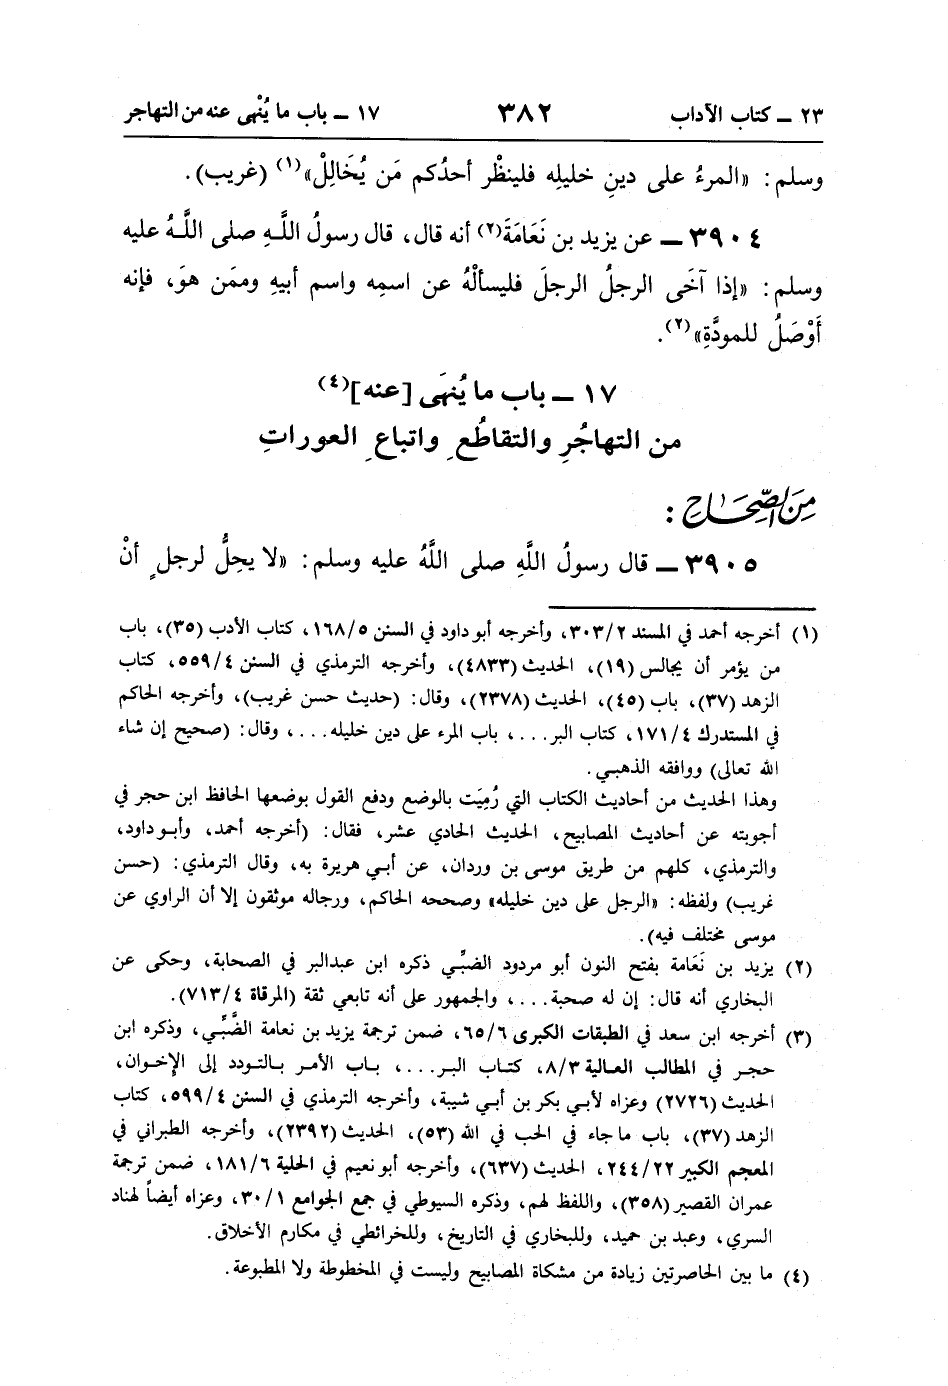 ٢٣ – كتاب الآداب ٣٨٢ ١٧ – باب ما يُنْهى عنه من التهاجر
وسلم: «المرءُ على دينِ خليلِه فلينظْر أحدُكم مَن يُخَالِلْ»(١) (غريب).
٣٩٠٤ – عن يزيد بن نَعَامَةَ(٢) أنه قال، قال رسولُ اللَّهِ صلى اللَّهُ عليه
وسلم: «إذا آخَى الرجلُ الرجلَ فليسألْهُ عن اسمِه واسم أبيهِ وممَن هوَ، فإنه
أوْصَلُ للمودَّةِ»(٢).
١٧ – باب ما يُنهَى [عنه](٤)
من التهاجُرِ والتقاطُعِ واتباعِ العوراتِ
مِنَ الصِّحَاحِ :
٣٩٠٥ – قال رسولُ اللَّهِ صلى اللَّهُ عليه وسلم: «لا يحِلُّ لرجلٍ أنْ
(١) أخرجه أحمد في المسند ٣٠٣/٢، وأخرجه أبو داود في السنن ١٦٨/٥، كتاب الأدب (٣٥)، باب
من يؤمر أن يجالس (١٩)، الحديث (٤٨٣٣)، وأخرجه الترمذي في السنن ٥٥٩/٤، كتاب
الزهد (٣٧)، باب (٤٥)، الحديث (٢٣٧٨)، وقال: (حديث حسن غريب)، وأخرجه الحاكم
في المستدرك ١٧١/٤، كتاب البر...، باب المرء على دين خليله...، وقال: (صحيح إن شاء
الله تعالى) ووافقه الذهبي.
وهذا الحديث من أحاديث الكتاب التي رُمِيَت بالوضع ودفع القول بوضعها الحافظ ابن حجر في
أجوبته عن أحاديث المصابيح، الحديث الحادي عشر، فقال: (أخرجه أحمد، وأبو داود،
والترمذي، كلهم من طريق موسى بن وردان، عن أبي هريرة به، وقال الترمذي: (حسن
غريب) ولفظه: «الرجل على دين خليله» وصححه الحاكم، ورجاله موثقون إلا أن الراوي عن
موسى مختلف فيه).
(٢) يزيد بن نَعَامة بفتح النون أبو مردود الضبِّي ذكره ابن عبدالبر في الصحابة، وحكى عن
البخاري أنه قال: إن له صحبة...، والجمهور على أنه تابعي ثقة (المرقاة ٧١٣/٤).
(٣) أخرجه ابن سعد في الطبقات الكبرى ٦٥/٦، ضمن ترجمة يزيد بن نعامة الضَّبِّي، وذكره ابن
حجر في المطالب العالية ٨/٣، كتاب البر...، باب الأمر بالتودد إلى الإخوان،
الحديث (٢٧٢٦) وعزاه لأبي بكر بن أبي شيبة، وأخرجه الترمذي في السنن ٥٩٩/٤، كتاب
الزهد (٣٧)، باب ما جاء في الحب في الله (٥٣)، الحديث (٢٣٩٢)، وأخرجه الطبراني في
المعجم الكبير ٢٤٤/٢٢، الحديث (٦٣٧)، وأخرجه أبو نعيم في الحلية ١٨١/٦، ضمن ترجمة
عمران القصير (٣٥٨)، واللفظ لهم، وذكره السيوطي في جمع الجوامع ٣٠/١، وعزاه أيضاً لهناد
السري، وعبد بن حميد، وللبخاري في التاريخ، وللخرائطي في مكارم الأخلاق.
(٤) ما بين الحاصرتين زيادة من مشكاة المصابيح وليست في المخطوطة ولا المطبوعة.